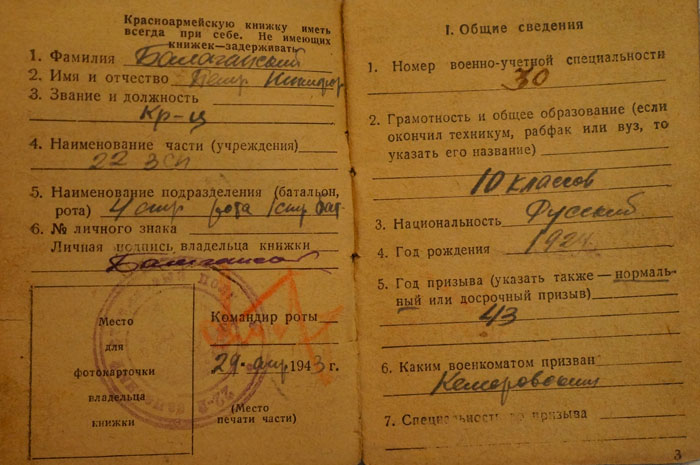 Красноармейскую книжку иметь
всегда при себе. Не имеющих
книжек—задерживать
1. Фамилия Балаганский
2. Имя и отчество Петр Никифор
3. Звание и должность
Кр-ц
4. Наименование части (учреждения)
22 ЗСП
5. Наименование подразделения (батальон,
рота) 4 стр рота 1 стр бат.
6. № личного знака
Личная подпись владельца книжки
Место
для
фотокарточки
владельца
книжки
Командир роты
29 апр 1943 г.
(Место
печати части)
I. Общие сведения
1. Номер военно-учетной специальности
30
2. Грамотность и общее образование (если
окончил техникум, рабфак или вуз, то
указать его название)
10 классов
3. Национальность Русский
4. Год рождения 1924
5. Год призыва (указать также—нормаль-
ный или досрочный призыв)
43
6. Каким военкоматом призван
Кемеровским
7. Специальность до призыва
3